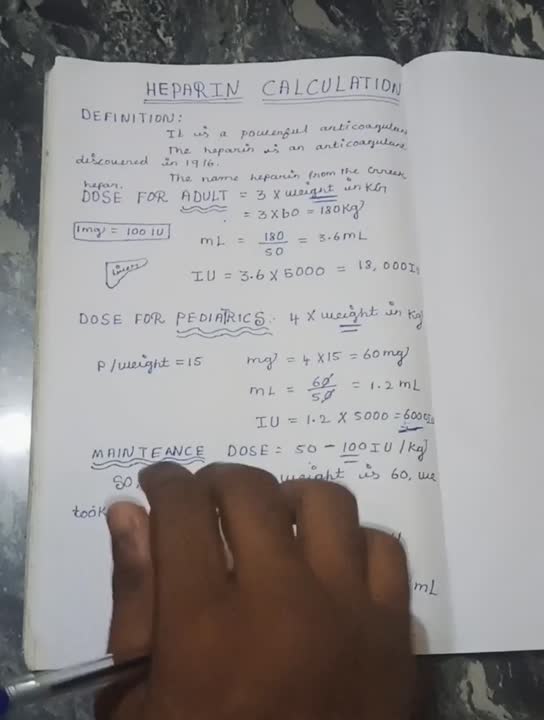 HEPARIN CALCULATION
DEFINITION:
It is a powerful anticoagulan
The heparin is an anticoagulant
discovered in 1916.
The name heparin from the Greek
hepar.
DOSE FOR ADULT = 3 X weight in KG
= 3 X 60 = 180 Kg
1mg = 100 IU
mL = 180/50 = 3.6 mL
IU = 3.6 X 5000 = 18,000 IU
DOSE FOR PEDIATRICS: 4 X weight in Kg
P/weight = 15 mg = 4 X 15 = 60 mg
mL = 60/50 = 1.2 mL
IU = 1.2 X 5000 = 6000 IU
MAINTEANCE DOSE = 50 - 100 IU/Kg
So, weight is 60, we
took
mL